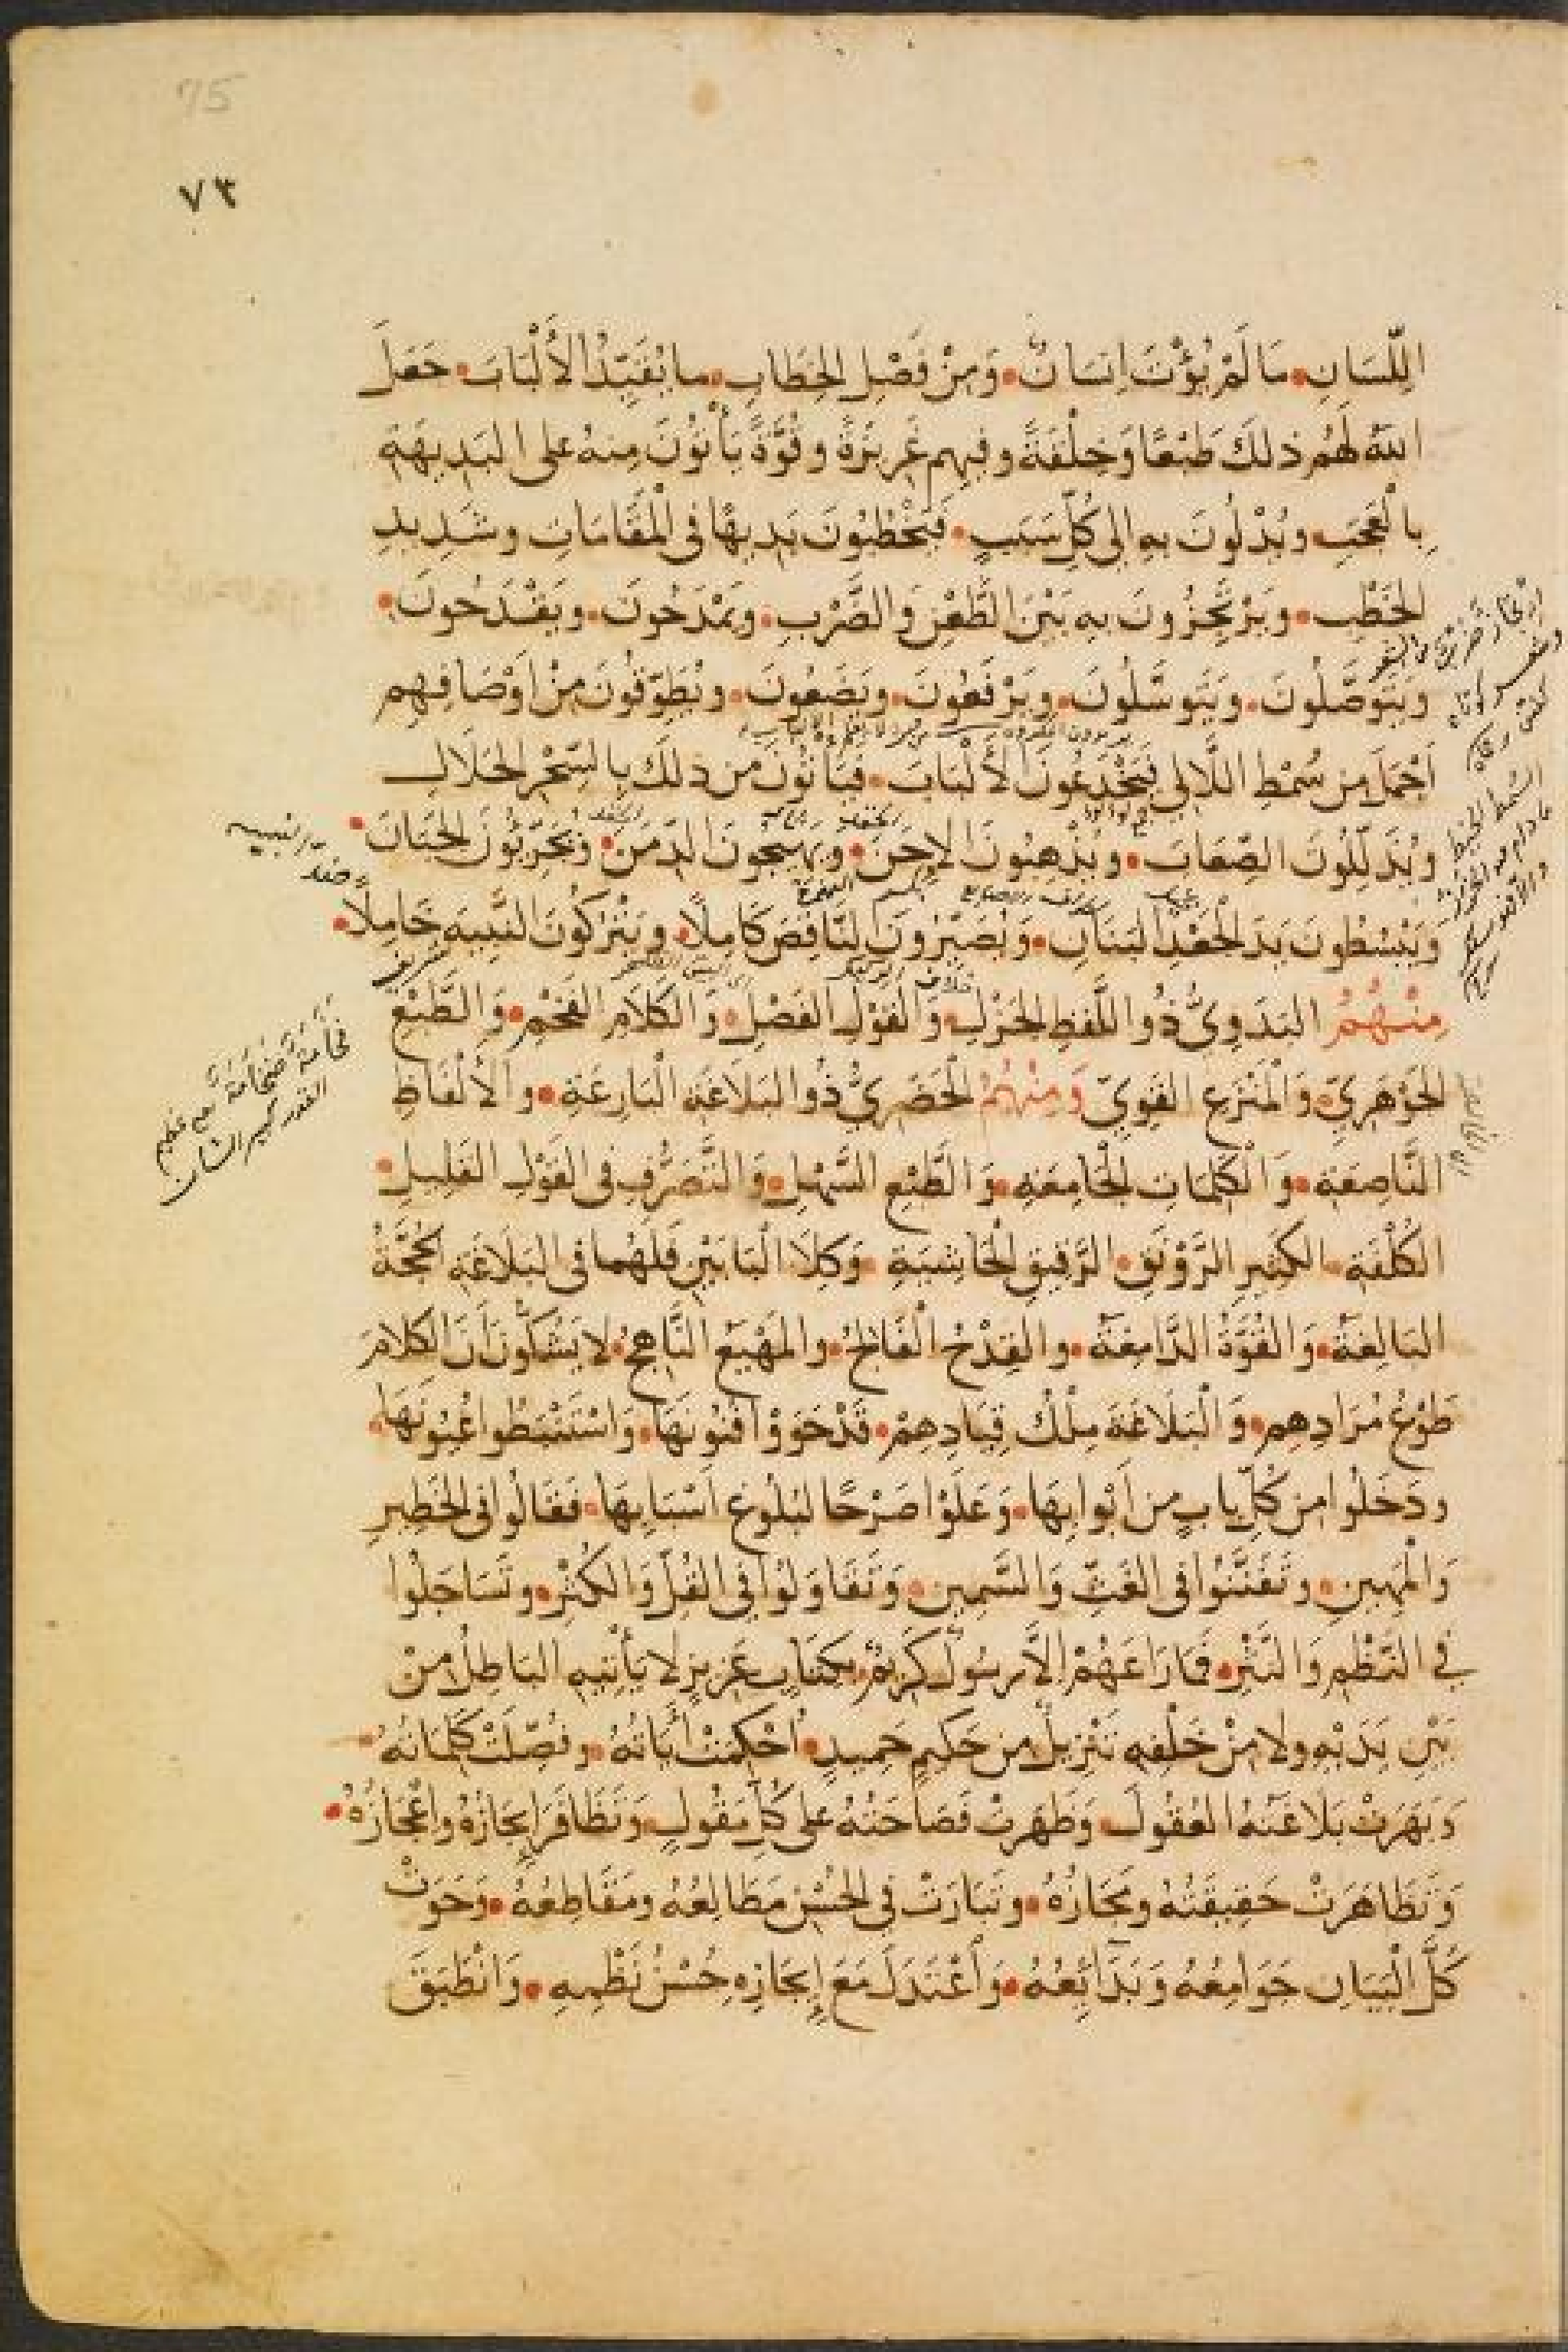 75
٧٣
اللِّسَانِ • مَا لَمْ يُؤْتَ اِنسَانٌ • وَمِنْ فَصْلِ الخِطَابِ • ما يُقَيِّدُ الأَلْبَابَ • جَعَلَ
اللهُ لَهُم ذلكَ طَبْعًا وَخِلْقَةً وفيهم غَرِيزَةً وقُوَّةً يَأْتُونَ مِنهُ على البَدِيهَةِ
بِالْعَجَبِ ويُدْلُونَ بهِ الى كُلِّ سَبَبٍ • فَيَخْطُبُونَ بَدِيهًا فى الْمَقَامَاتِ وشَدِيدِ
الخَطْبِ • ويَرْتَجِزُونَ بهِ بَيْنَ الطَّعْنِ وَالضَّرْبِ • ويَمْدَحُونَ • ويَقْدَحُونَ •
ويَتَوَصَّلُونَ • ويَتَوسَّلُونَ • ويَرْفَعُونَ • ويَضَعُونَ • ويُطَوِّقُونَ مِنْ اَوْصَافِهِم
اَجْمَلَ مِن سُمْطِ اللَّالِى فَيَخْدَعُونَ الأَلْبَابَ • فَيَأتُونَ من ذلكَ بِالسِّحْرِ الحَلَالِ
ويُذَلِّلُونَ الصِّعَابَ • ويُذْهِبُونَ الإِحَنَ • ويُهَيِّجُونَ الدِّمَنَ • ويُجَرِّئُونَ الجَبَانَ •
وَيَبْسُطُونَ يَدَ الْجَعْدِ البَنَانِ • وَيُصَيِّرُونَ النَّاقِصَ كَامِلًا • ويَتْرُكُونَ النَّبِيهَ خَامِلًا •
مِنْهُمُ البَدَوِىُّ ذُو اللَّفظِ الجَزْلِ • وَالْقَوْلِ الفَصْلِ • وَالكَلَامِ الفَخْمِ • وَالطَّبْعِ
الجَوْهَرِيِّ • وَالْمَنْزَعِ القَوِيِّ وَمِنْهُمُ الْحَضَرِيُّ ذُو البَلَاغَةِ الْبَارِعَةِ • والأَلْفَاظِ
النَّاصِعَةِ • وَالْكَلِمَاتِ الْجَامِعَةِ • وَالطَّبْعِ السَّهْلِ • وَالتَّصَرُّفِ فى القَوْلِ القَلِيلِ •
الكُلْفَةِ • الكَثِيرِ الرَّوْنَقِ • الرَّقِيقِ الْحَاشِيَةِ • وَكِلَا الْبَابَيْنِ فَلَهُما فى البَلَاغَةِ الحُجَّةُ
البَالِغَةُ • وَالقُوَّةُ الدَّامِغَةُ • والقِدْحُ الْفَالِجُ • والمَهْيَعُ النَّاهِجُ • لا يَشُكُّونَ اَنَّ الكَلَامَ
طَوْعُ مُرَادِهِم • وَالْبَلَاغَةَ مِلْكُ قِيَادِهِمْ • قَدْ حَوَوْا فُنُونَهَا • وَاسْتَنْبَطُوا عُيُونَهَا •
ودَخَلُوا مِن كُلِّ بابٍ من اَبْوابِهَا • وَعَلَوْا صَرْحًا لبُلُوغِ اَسْبَابِهَا • فقَالُوا فى الخَطِيرِ
وَالْمَهِينِ • وتَفَنَّنُوا فى الغَثِّ وَالسَّمِينِ • وَتَقَاوَلُوا فى القُلِّ وَالكُثْرِ • وتَسَاجَلُوا
فى النَّظْمِ وَالنَّثْرِ • فَمَا رَاعَهُمْ اِلَّا رسُولٌ كَرِيمٌ • بِكتَابٍ عَزِيزٍ لا يَأْتِيهِ البَاطِلُ مِنْ
بَيْنِ يَدَيْهِ ولا مِنْ خَلْفِهِ تَنْزِيلٌ من حَكِيمٍ حَمِيدٍ • اُحْكِمَتْ اٰيَاتُهُ • وفُصِّلَتْ كَلِمَاتُهُ •
وَبَهَرَتْ بَلَاغَتُهُ العُقُولَ • وَظَهَرَتْ فَصَاحَتُهُ على كُلِّ مَقُولٍ • وَتَظَافَرَ إِيجَازُهُ واِعْجَازُهُ •
وَتَظَاهَرَتْ حَقِيقَتُهُ ومَجَازُهُ • وتَبَارَتْ فى الحُسْنِ مَطَالِعُهُ ومَقَاطِعُهُ • وَحَوَتْ
كُلَّ الْبَيَانِ جَوَامِعُهُ وَبَدَائِعُهُ • وَاَعْتَدَلَ مَعَ اِيجَازِهِ حُسْنُ نَظْمِهِ • وَانْطَبَقَ
ضدّ النبيه
شريف
فخامة ضخامة يعنى عظيم
القدر كبير الشان